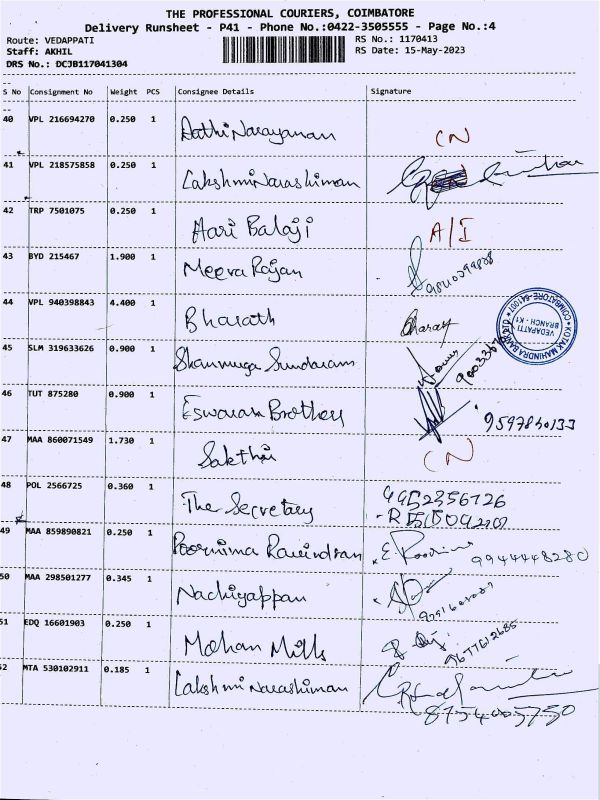 THE PROFESSIONAL COURIERS, COIMBATORE
Delivery Runsheet - P41 - Phone No.:0422-3505555 - Page No.:4
Route: VEDAPPATI RS No.: 1170413
Staff: AKHIL RS Date: 15-May-2023
DRS No.: DCJB117041304
S No Consignment No Weight PCS Consignee Details Signature
40 VPL 216694270 0.250 1 Dathi Narayanan CN
41 VPL 218575858 0.250 1 Lakshmi Narashiman
42 TRP 7501075 0.250 1 Hari Balaji A/I
43 BYD 215467 1.900 1 Meera Rajan
44 VPL 940398843 4.400 1 Bharath Bharath
KOTAK MAHINDRA BANK
VEDAPATTI
BRANCH - K1
COIMBATORE-641007
45 SLM 319633626 0.900 1 Shanmuga Sundaram
46 TUT 875280 0.900 1 Eswaran Brothers 9597840133
47 MAA 860071549 1.730 1 Sakthi CN
48 POL 2566725 0.360 1 The Secretary 9952356726
49 MAA 859890821 0.250 1 Poornima Ravindran E. Poornima 9944448280
50 MAA 298501277 0.345 1 Nachiyappan
51 EDQ 16601903 0.250 1 Mohan Mills 9677612685
52 MTA 530102911 0.185 1 Lakshmi Narashiman
8754005750